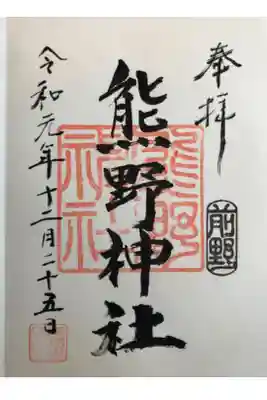 奉拝
前野
熊野神社
熊野
神社
令和元年十二月二十五日